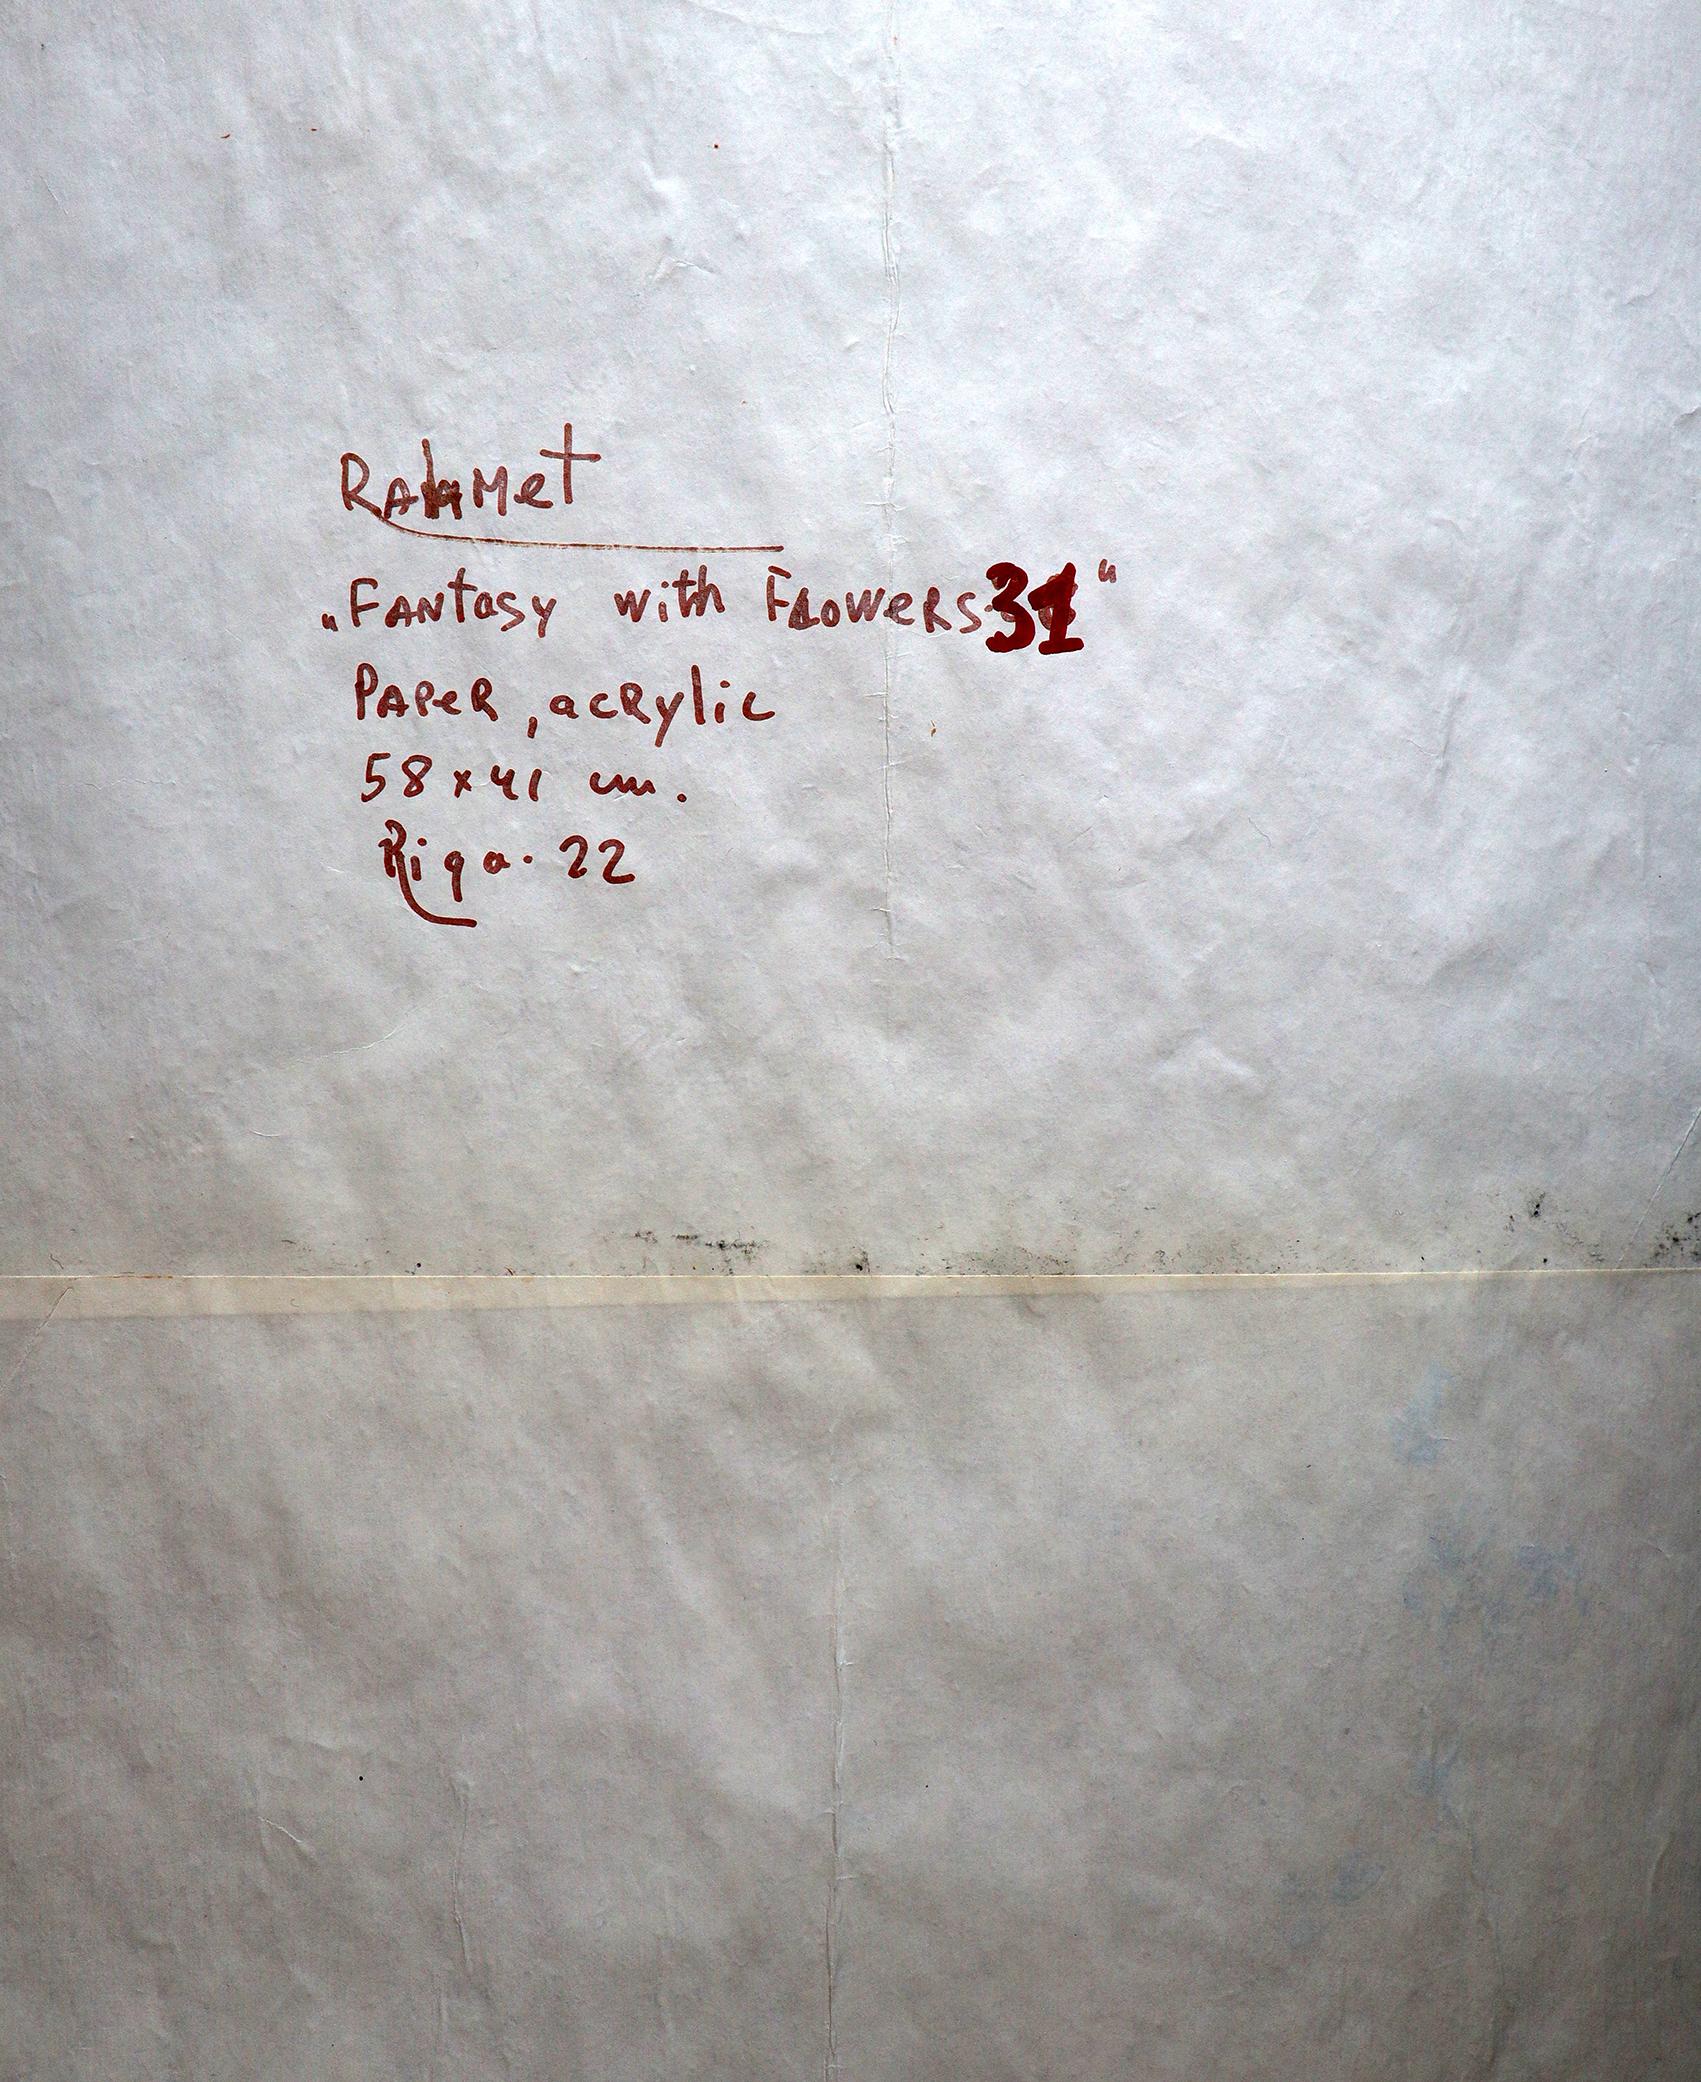 RAhMet
„FANtasy with FLoweRS 31“
PAPeR, acRylic
58 x 41 cm.
Riga. 22